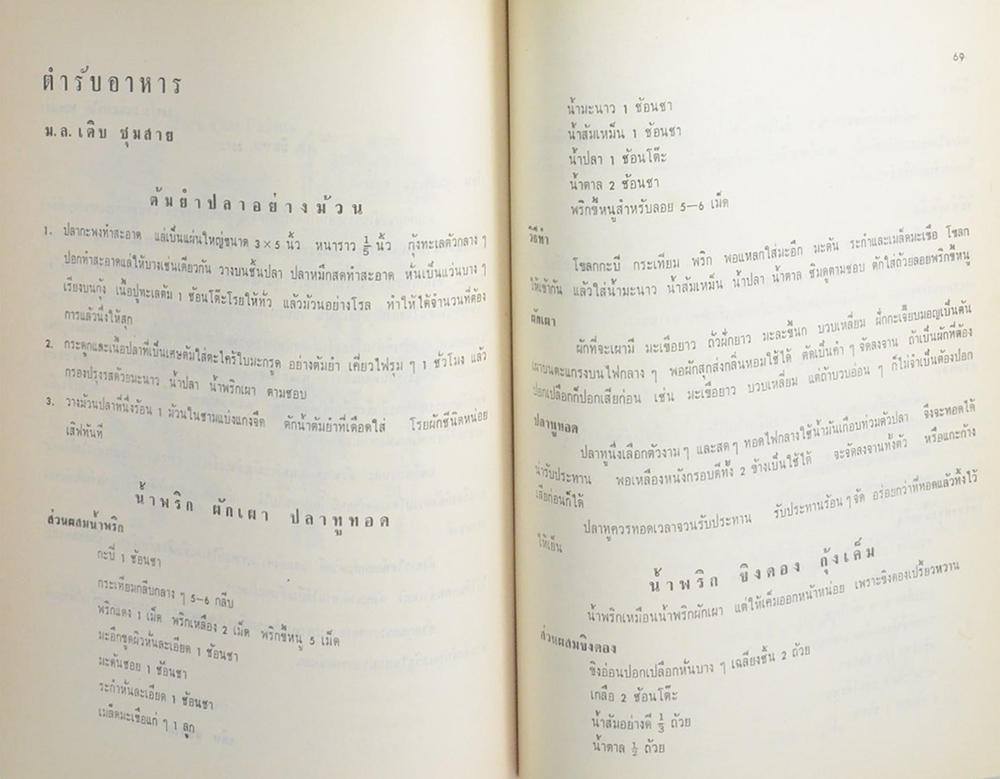 ตำรับอาหาร
ม.ล. เติบ ชุมสาย
ต้มยำปลาอย่างม้วน
1. ปลากะพงทำสะอาด แล่เป็นแผ่นใหญ่ขนาด 3 × 5 นิ้ว หนาราว 1/5 นิ้ว กุ้งทะเลตัวกลาง ๆ
ปอกทำสะอาดแล่ให้บางเช่นเดียวกัน วางบนชิ้นปลา ปลาหมึกสดทำสะอาด หั่นเป็นแว่นบาง ๆ
เรียงบนกุ้ง เนื้อปูทะเลต้ม 1 ช้อนโต๊ะโรยให้ทั่ว แล้วม้วนอย่างโรล ทำให้ได้จำนวนที่ต้อง
การแล้วนึ่งให้สุก
2. กระดูกและเนื้อปลาที่เป็นเศษต้มใส่ตะไคร้ใบมะกรูด อย่างต้มยำ เคี่ยวไฟรุม ๆ 1 ชั่วโมง แล้ว
กรองปรุงรสด้วยมะนาว น้ำปลา น้ำพริกเผา ตามชอบ
3. วางม้วนปลาที่นึ่งร้อน 1 ม้วนในชามแบ่งแกงจืด ตักน้ำต้มยำที่เดือดใส่ โรยผักชีนิดหน่อย
เสิฟทันที
น้ำพริก ผักเผา ปลาทูทอด
ส่วนผสมน้ำพริก
กะปิ 1 ช้อนชา
กระเทียมกลีบกลาง ๆ 5-6 กลีบ
พริกแดง 1 เม็ด พริกเหลือง 2 เม็ด พริกขี้หนู 5 เม็ด
มะอึกขูดผิวหั่นละเอียด 1 ช้อนชา
มะดันซอย 1 ช้อนชา
ระกำหั่นละเอียด 1 ช้อนชา
เมล็ดมะเขือแก่ ๆ 1 ลูก
69
น้ำมะนาว 1 ช้อนชา
น้ำส้มเหม็น 1 ช้อนชา
น้ำปลา 1 ช้อนโต๊ะ
น้ำตาล 2 ช้อนชา
พริกขี้หนูสำหรับลอย 5—6 เม็ด
วิธีทำ
โขลกกะปิ กระเทียม พริก พอแหลกใส่มะอึก มะดัน ระกำและเมล็ดมะเขือ โขลก
ให้เข้ากัน แล้วใส่น้ำมะนาว น้ำส้มเหม็น น้ำปลา น้ำตาล ชิมดูตามชอบ ตักใส่ถ้วยลอยพริกขี้หนู
ผักเผา
ผักที่จะเผามี มะเขือยาว ถั่วฝักยาว มะละขี้นก บวบเหลี่ยม ฝักกะเจี๊ยบมอญเป็นต้น
เผาบนตะแกรงบนไฟกลาง ๆ พอผักสุกส่งกลิ่นหอมใช้ได้ ตัดเป็นคำ ๆ จัดลงจาน ถ้าเป็นผักที่ต้อง
ปอกเปลือกก็ปอกเสียก่อน เช่น มะเขือยาว บวบเหลี่ยม แต่ถ้าบวบอ่อน ๆ ก็ไม่จำเป็นต้องปอก
ปลาทูทอด
ปลาทูนึ่งเลือกตัวงาม ๆ และสด ๆ ทอดไฟกลางใช้น้ำมันเกือบท่วมตัวปลา จึงจะทอดได้
น่ารับประทาน พอเหลืองหนังกรอบดีทั้ง 2 ข้างเป็นใช้ได้ จะจัดลงจานทั้งตัว หรือแกะก้าง
เสียก่อนก็ได้
ปลาทูควรทอดเวลาจวนรับประทาน รับประทานร้อน ๆ จัด อร่อยกว่าที่ทอดแล้วทิ้งไว้
ให้เย็น
น้ำพริก ขิงดอง กุ้งเค็ม
น้ำพริกเหมือนน้ำพริกผักเผา แต่ให้เค็มออกหน้าหน่อย เพราะขิงดองเปรี้ยวหวาน
ส่วนผสมขิงดอง
ขิงอ่อนปอกเปลือกหั่นบาง ๆ เฉลียงชิ้น 2 ถ้วย
เกลือ 2 ช้อนโต๊ะ
น้ำส้มอย่างดี 1/3 ถ้วย
น้ำตาล 1/2 ถ้วย